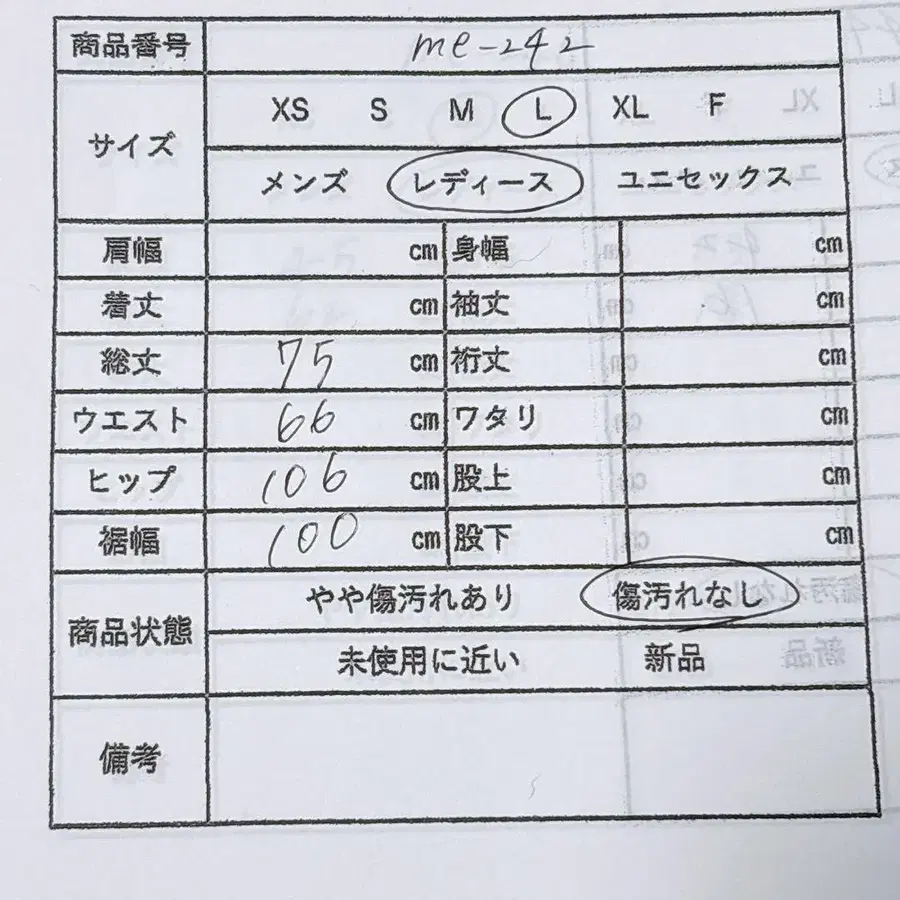 商品番号 me-242
サイズ XS S M L XL F
メンズ レディース ユニセックス
肩幅 cm 身幅 cm
着丈 cm 袖丈 cm
総丈 75 cm 裄丈 cm
ウエスト 66 cm ワタリ cm
ヒップ 106 cm 股上 cm
裾幅 100 cm 股下 cm
商品状態 やや傷汚れあり 傷汚れなし
未使用に近い 新品
備考